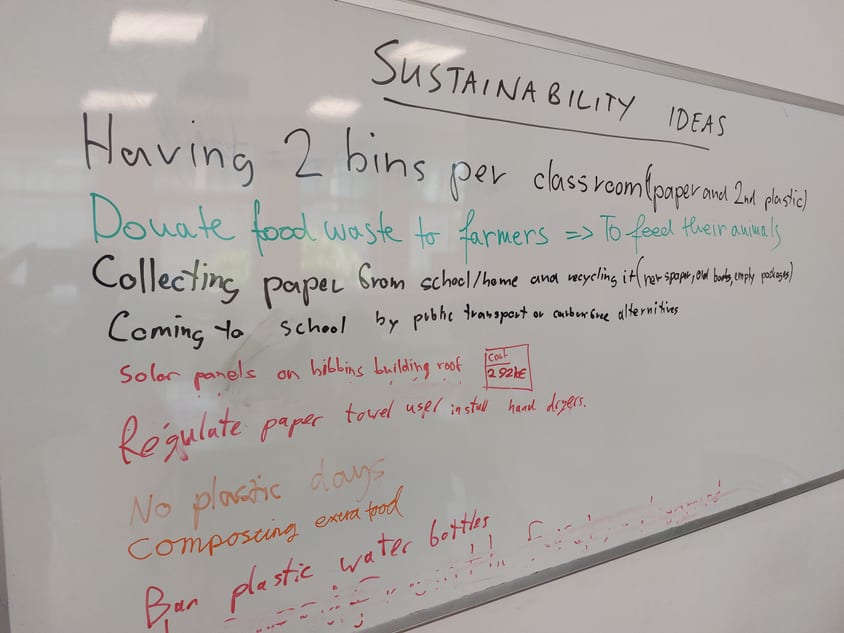 SUSTAINABILITY IDEAS
Having 2 bins per classroom (paper and 2nd plastic)
Donate food waste to farmers => To feed their animals
Collecting paper from school/home and recycling it (newspaper, old books, empty packages)
Coming to school by public transport or carbon free alternitives
Solar panels on bibbins building roof
Cost
292k€
Regulate paper towel use/ install hand dryers.
No plastic days
Composting extra food
Ban plastic water bottles